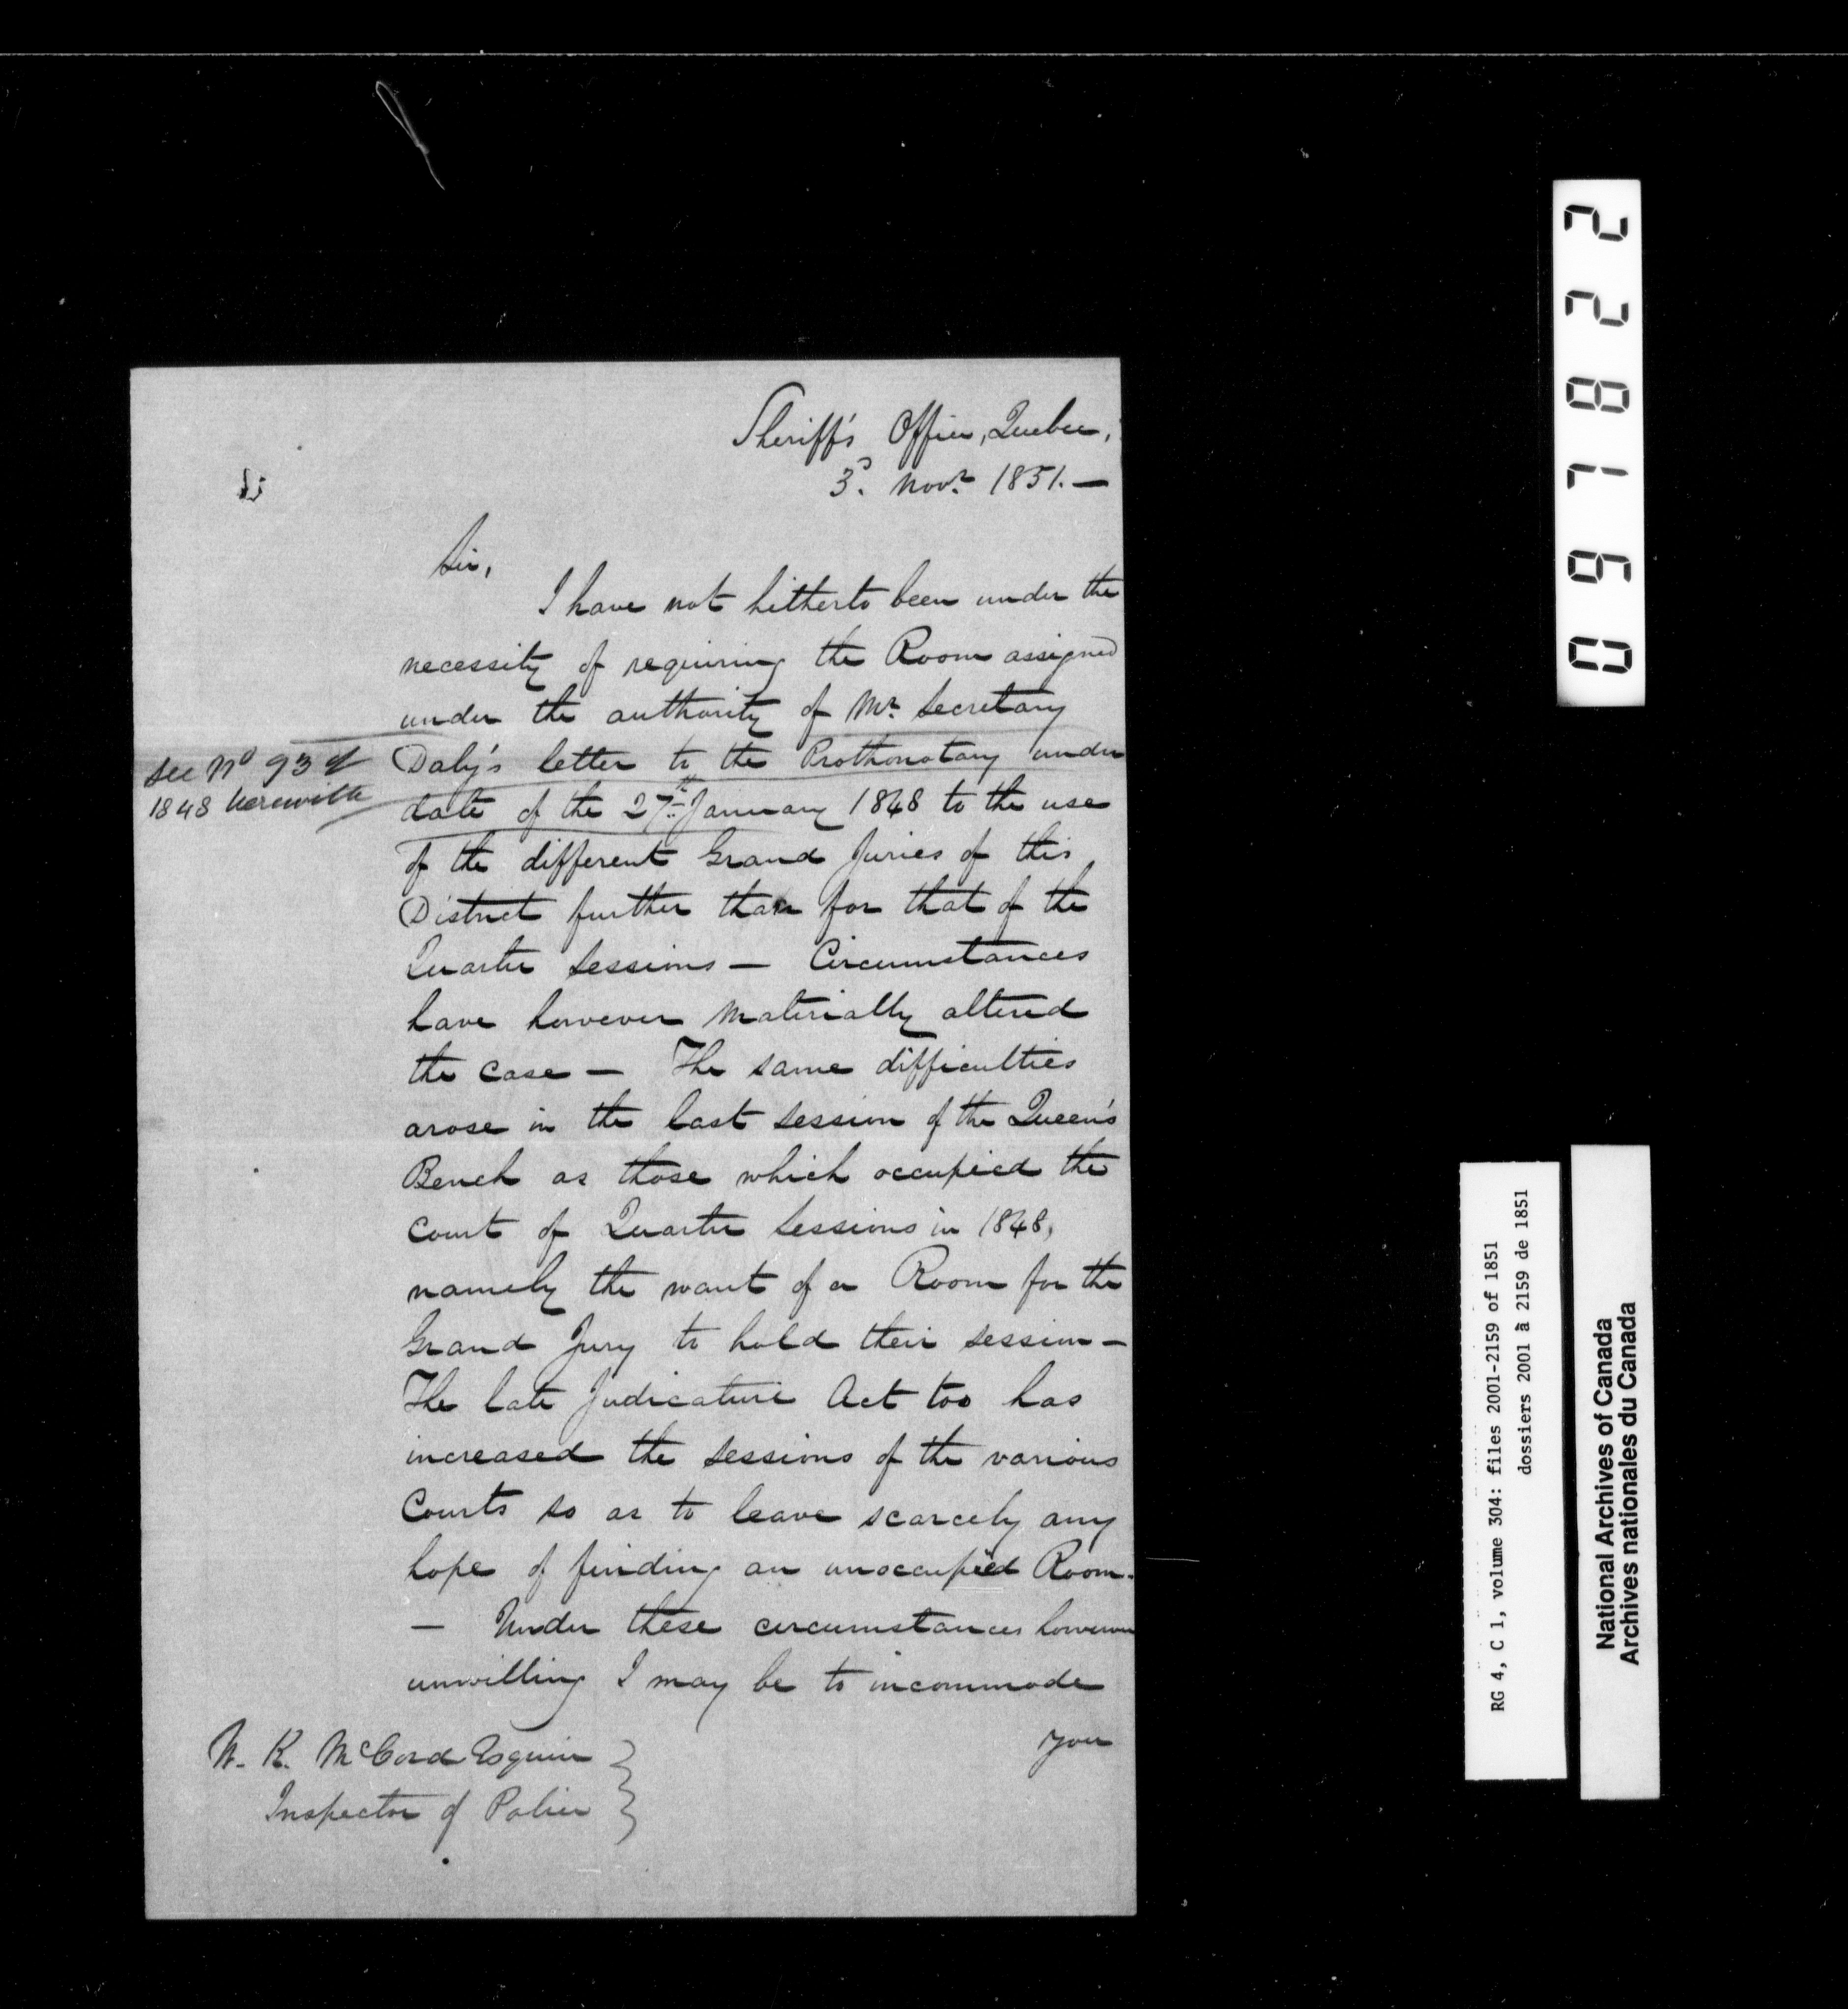 Sheriff's Office, Quebec,
3d. Novr. 1851. —
Sir,
I have not hitherto been under the
necessity of requiring the Room assigned
under the authority of Mr. Secretary
Daly's letter to the Prothonotary under
date of the 27th January 1848 to the use
of the different Grand Juries of this
District further than for that of the
Quarter Sessions — Circumstances
have however materially altered
the case — The same difficulties
arose in the last Session of the Queen's
Bench as those which occupied the
Court of Quarter Sessions in 1848,
namely the want of a Room for the
Grand Jury to hold their session —
The late Judicature Act too has
increased the Sessions of the various
Courts so as to leave scarcely any
hope of finding an unoccupied Room.
— Under these circumstances however
unwilling I may be to incommode
you
See No 93 of
1848 herewith
W. K. McCord Esquire
Inspector of Police
097822
RG 4, C 1, volume 304: files 2001-2159 of 1851
dossiers 2001 à 2159 de 1851
National Archives of Canada
Archives nationales du Canada